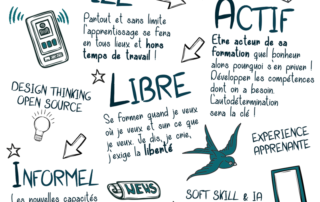 ACTIF
Partout et sans limite
l'apprentissage se fera
en tous lieux et hors
temps de travail !
Etre acteur de sa
formation quel bonheur
alors pourquoi s'en priver !
Développer les compétences
dont on a besoin.
L'autodétermination
sera la clé !
DESIGN THINKING
OPEN SOURCE
LIBRE
Se former quand je veux
où je veux et sur ce que
je veux. Je dis, je crie,
j'exige la liberté
EXPERIENCE
APPRENANTE
INFORMEL
Les nouvelles capacités
NEWS
SOFT SKILL & IA